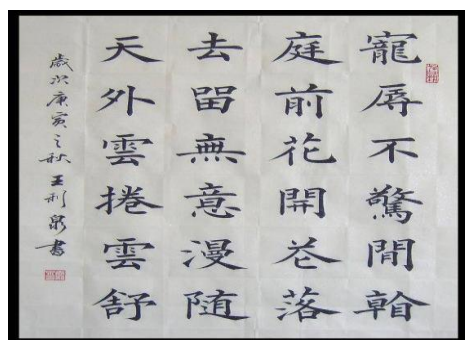 寵辱不驚閒看
庭前花開花落
去留無意漫随
天外雲捲雲舒
歲次庚寅之秋王利泉書